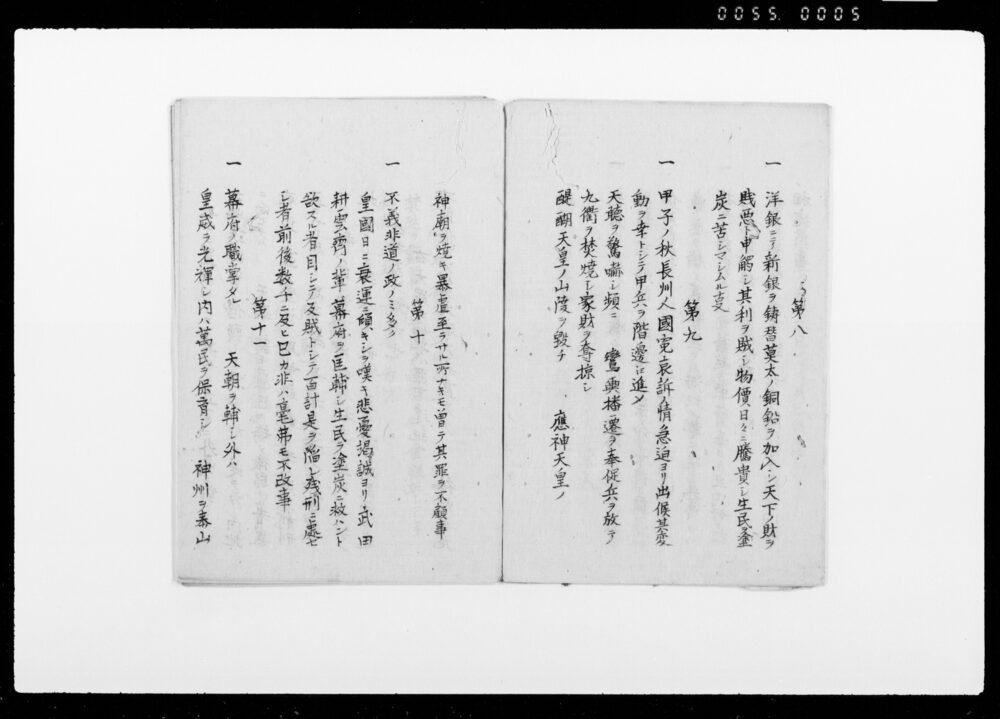 0055. 0005
第八
一 洋銀ニテ新銀ヲ鋳替莫太ノ銅鉛ヲ加入シ天下ノ財ヲ
賎悪ト申觸シ其利ヲ賊シ物價日々ニ騰貴シ生民塗
炭ニ苦シマシムル支
第九
一 甲子ノ秋長州人國冤哀訴ノ情急迫ヨリ出候其変
動ヲ幸トシテ甲兵ヲ階邊ニ進メ
天聴ヲ驚嚇シ頻ニ 鸞輿播遷ヲ奉促兵ヲ放テ
九衢ヲ焚焼シ家財ヲ奪掠シ
醍醐天皇ノ山陵ヲ毀チ 應神天皇ノ
神廟ヲ焼キ暴虐至ラサル所ナキモ曽テ其罪ヲ不顧事
第十
一 不義非道ノ政ノミ多ク
皇國日ニ衰運ニ傾キシヲ嘆キ悲憂掲誠ヨリ武田
耕雲齊ノ輩幕府ヲ匡輔シ生民ヲ塗炭ニ救ハント
欲スル者目シテ反賊トシテ百計是ヲ陥レ残刑ニ處セ
シ者前後数千ニ及ヒ己カ非ハ毫弗モ不改事
第十一
一 幕府ノ職掌タル 天朝ヲ輔シ外ハ
皇威ヲ光輝シ内ハ萬民ヲ保育シ 神州ヲ泰山